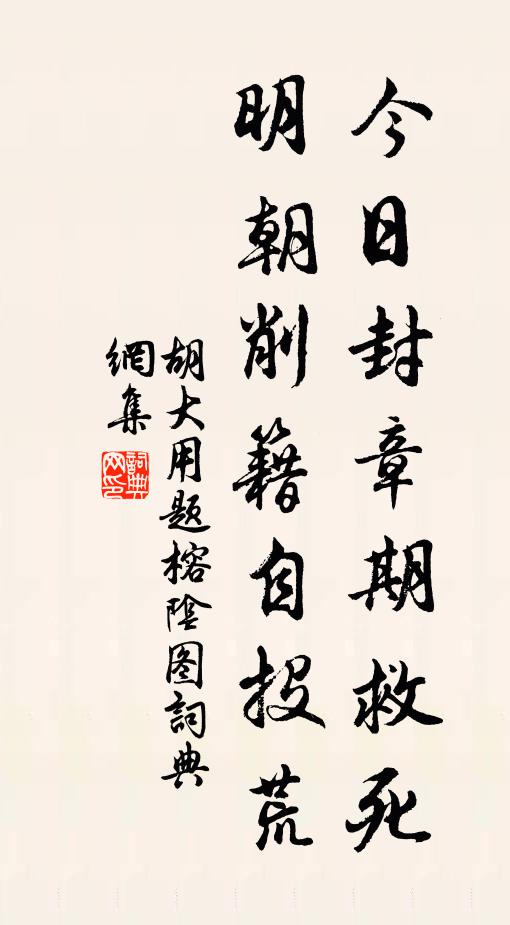 今日封章期救死
明朝削籍自投荒
胡大用题榕陰图詞典
網集
詞典
网印